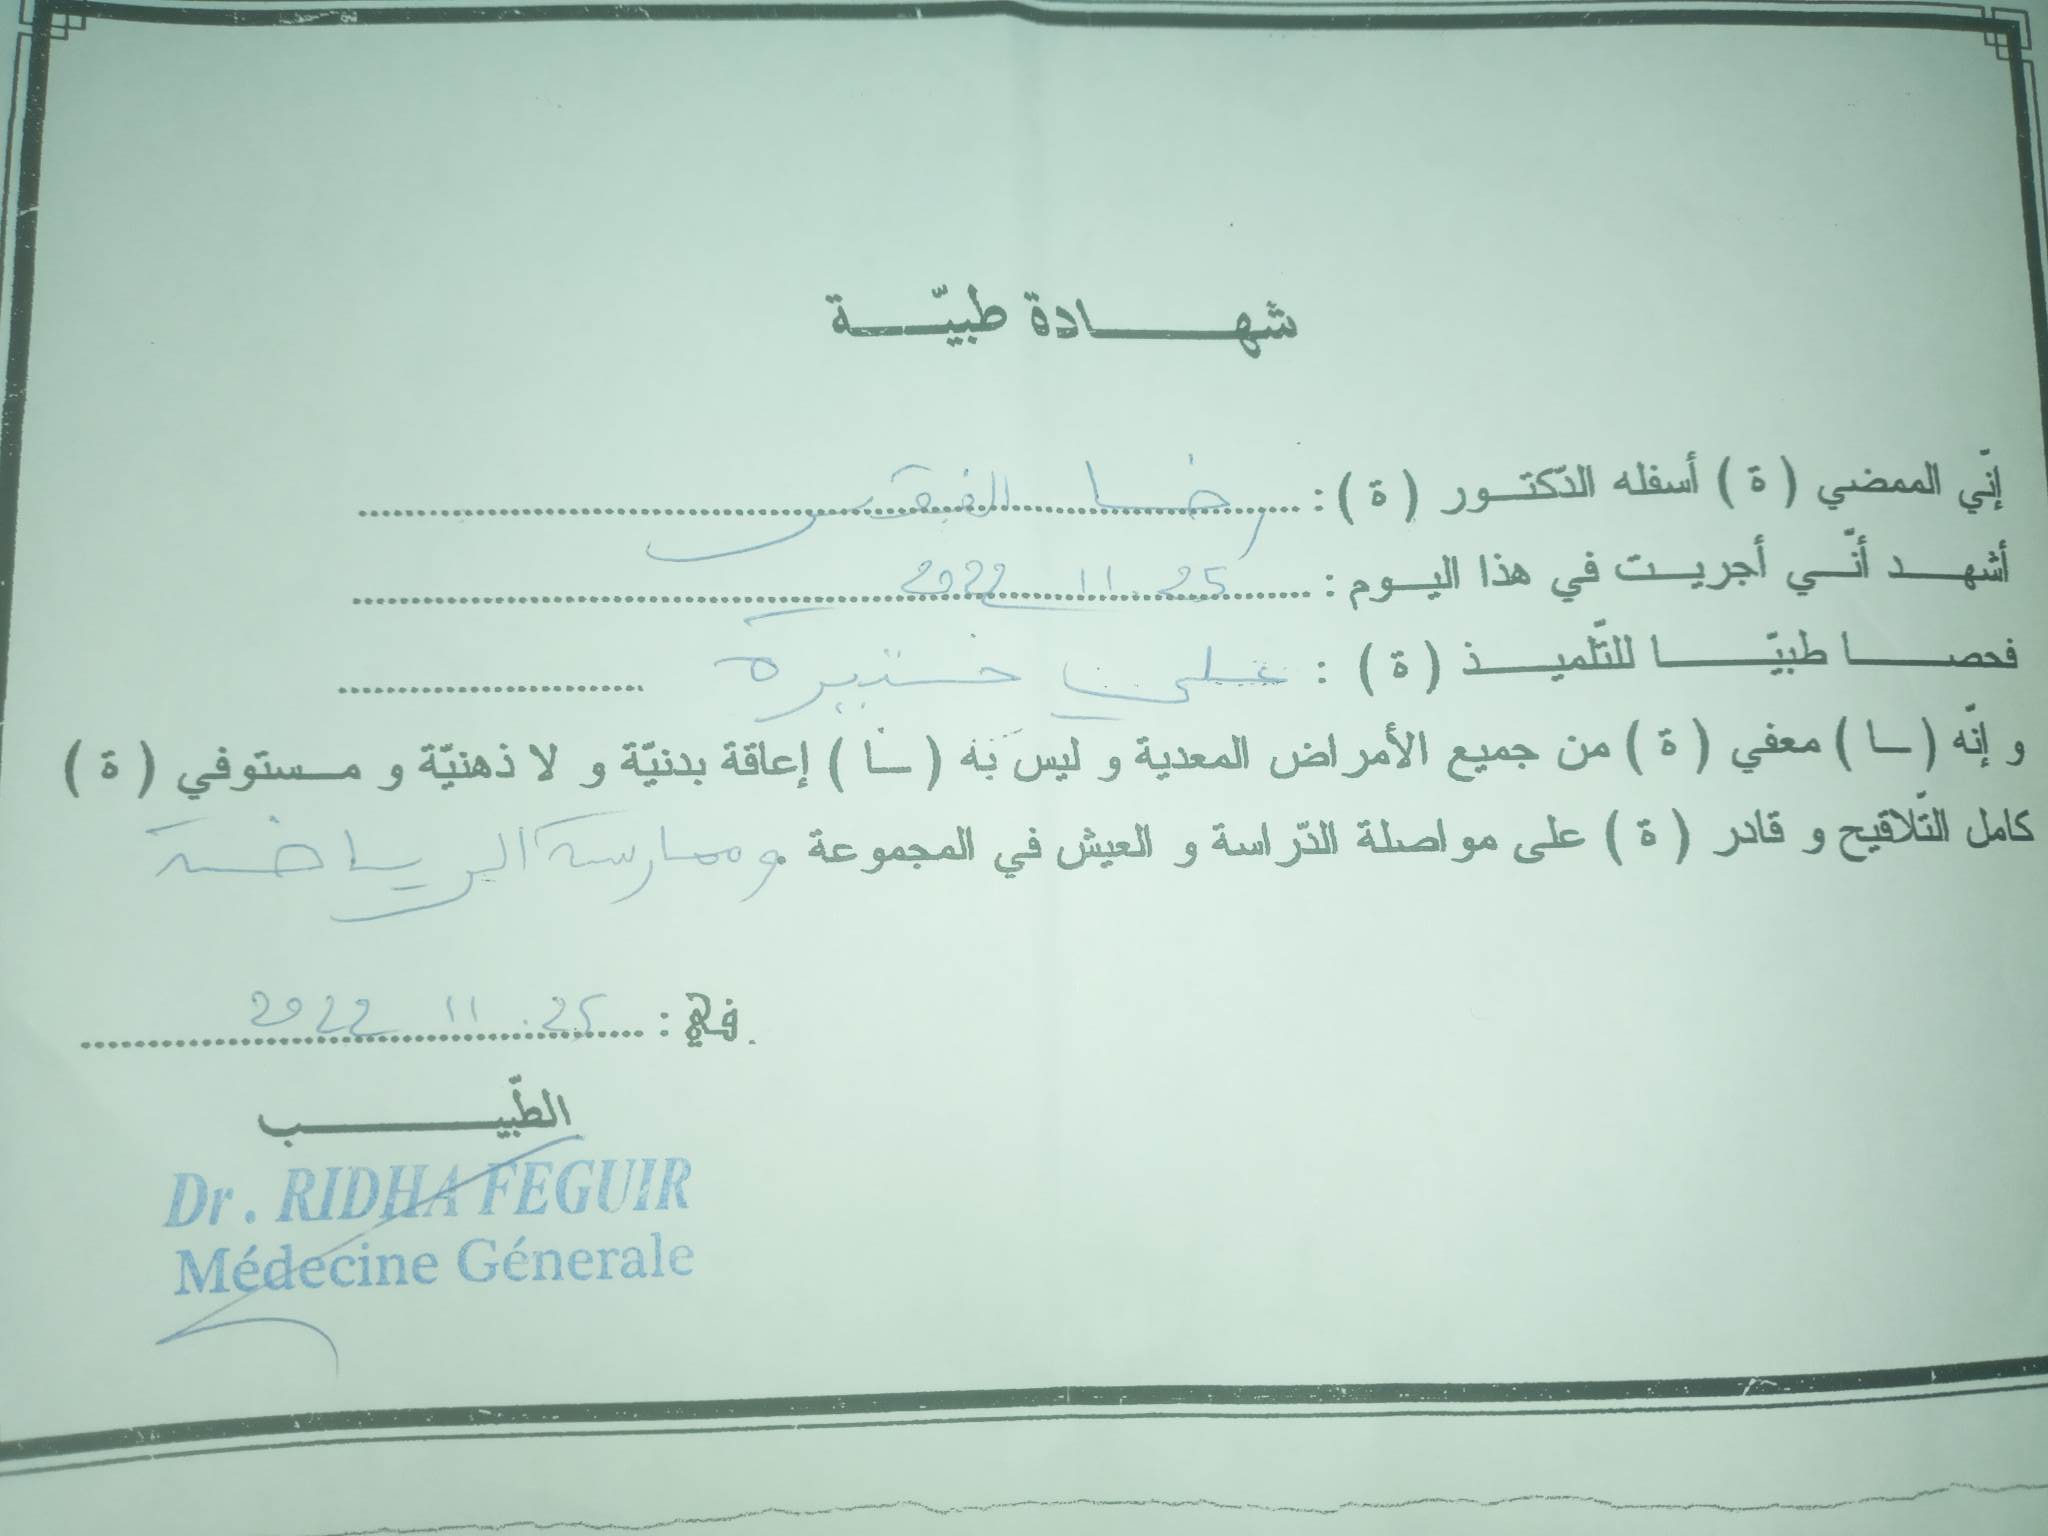 شهادة طبيّة
إنّي الممضي ( ة ) أسفله الدّكتور ( ة ) : رضا الفقير
أشهد أنّي أجريت في هذا اليوم : 25 . 11 2022
فحصا طبيّا للتّلميذ ( ة ) : علي
و إنّه ( ـا ) معفي ( ة ) من جميع الأمراض المعدية و ليس به ( ـا ) إعاقة بدنيّة و لا ذهنيّة و مستوفي ( ة )
كامل التّلاقيح و قادر ( ة ) على مواصلة الدّراسة و العيش في المجموعة . وممارسة الرياضة
في : 25 . 11 2022
الطّبيب
Dr . RIDHA FEGUIR
Médecine Génerale